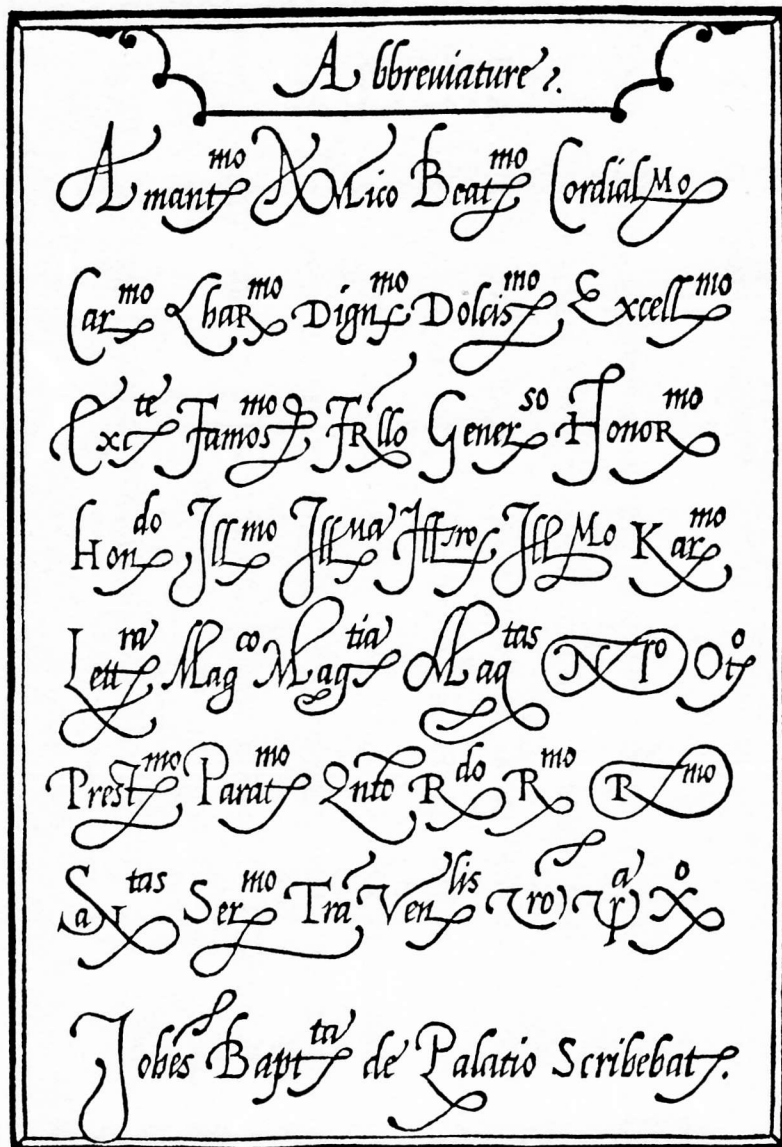 Abbreviature.
Amant.mo AMico Beat.mo Cordial.Mo
Car.mo Char.mo Dign.mo Dolcis.mo Excell.mo
Exc.te Famos.mo FRllo Gener.so HonoR.mo
Hon.do Ill.mo Ill.ma Ill.ro Ill.Mo Kar.mo
Lett.ra Mag.co Mag.tia Mag.tas N.ro Ot.o
Prest.mo Parat.mo Qnto R.do R.mo R.mo
San.tas Ser.mo Tra Ven.lis Vro V.a X.o
Johes Bapt.ta de Palatio Scribebat.